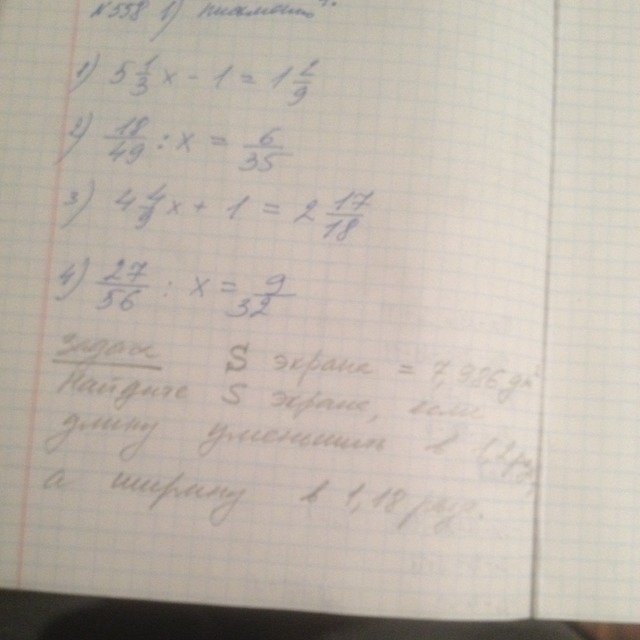 №558 1) письменно
1) 5 1/3 x - 1 = 1 1/9
2) 18/49 : x = 6/35
3) 4 4/9 x + 1 = 2 17/18
4) 27/56 : x = 9/32
задача S экрана =
Найдите S экрана, если
длину уменьшили в
а ширину в 1,18 раз.